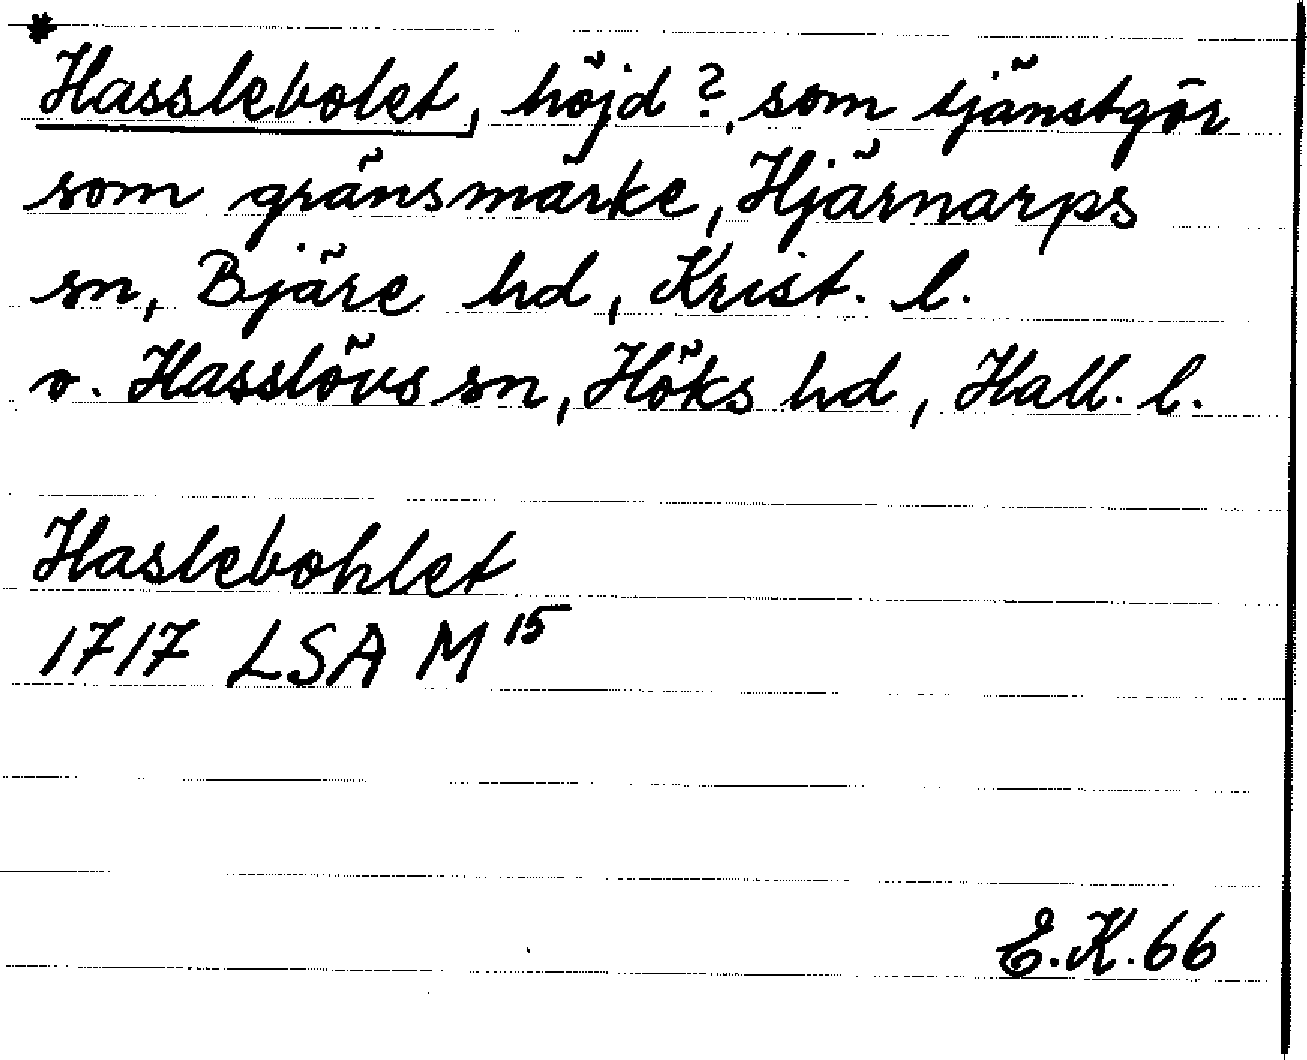 *
Hasslebolet, höjd?, som tjänstgör
som gränsmärke, Hjärnarps
sn, Bjäre hd, Krist. l.
o. Hasslövs sn, Höks hd, Hall. l.
Haslebohlet
1717 LSA M 15
E.K.66